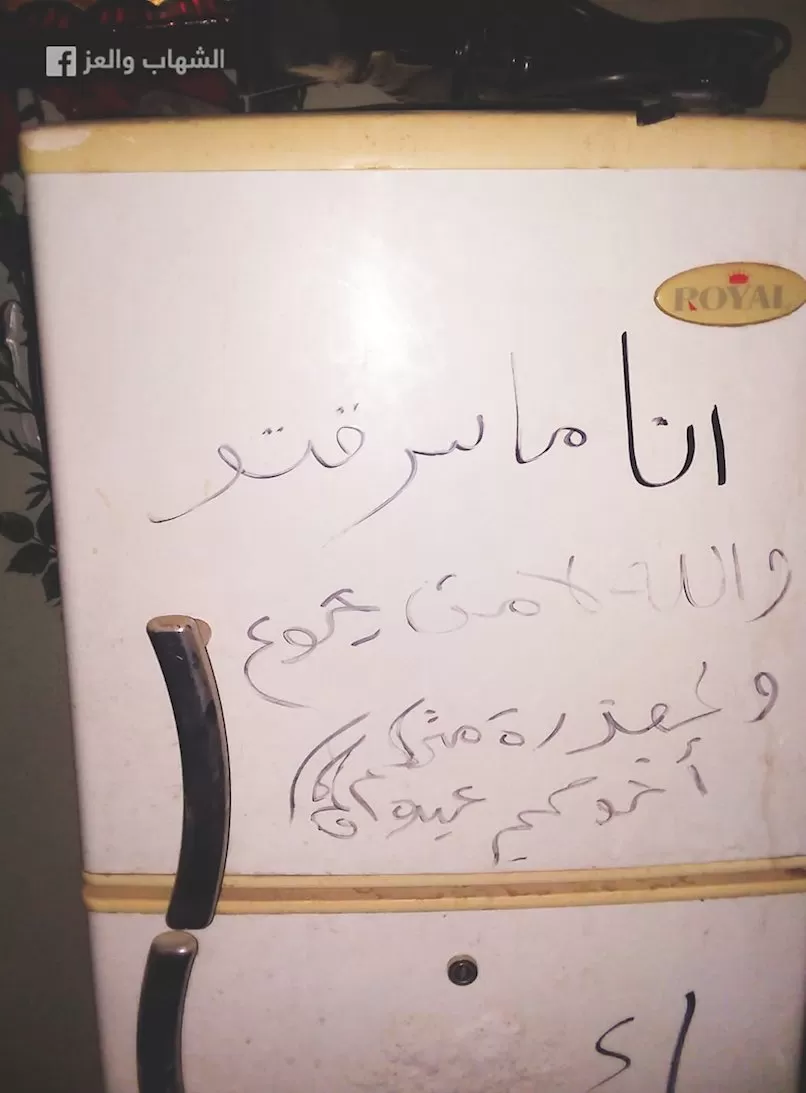 الشهاب والعز
ROYAL
انا ما سرقتو
والله لا من يجوع
و لمعذرة منكم
أخوكم عبدو